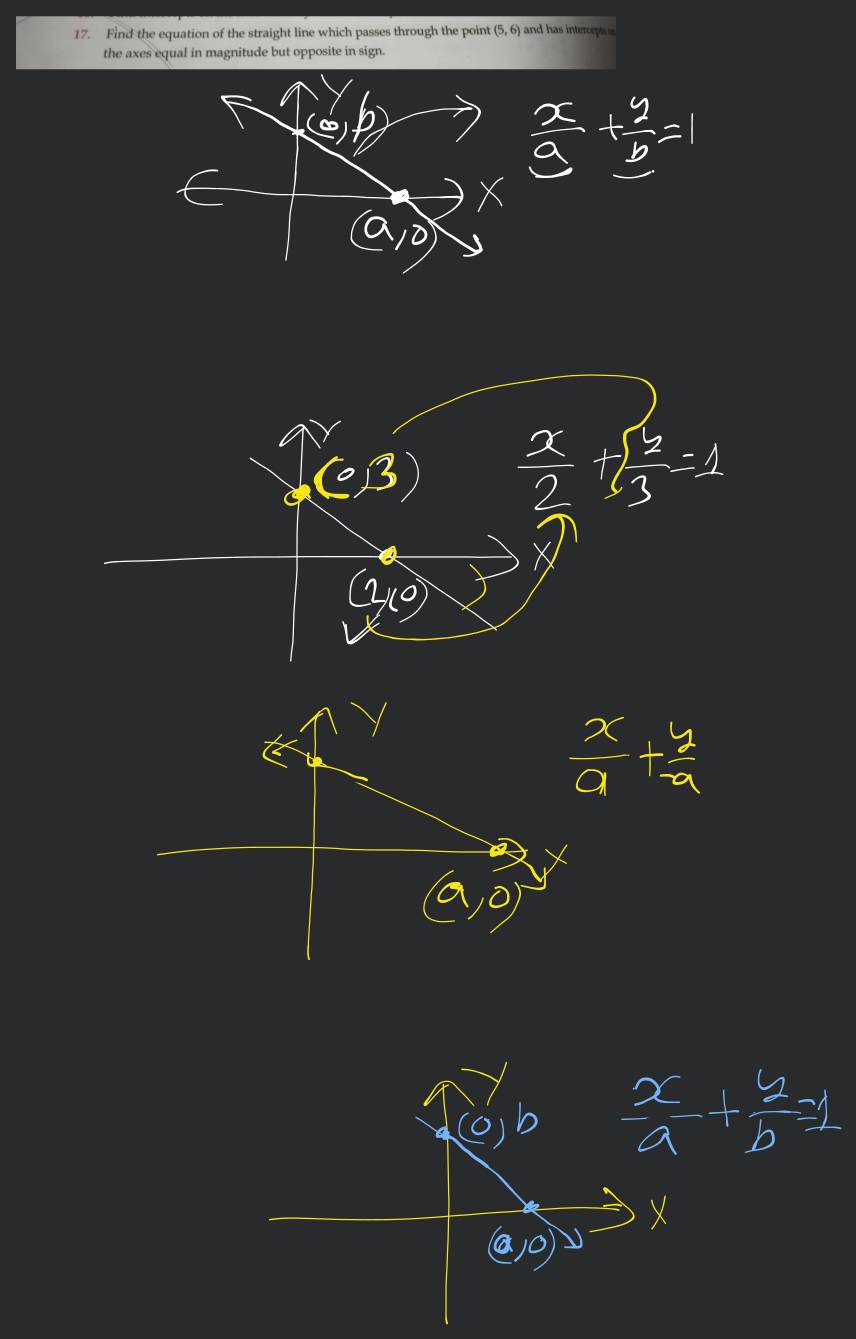 17. Find the equation of the straight line which passes through the point (5, 6) and has intercepts
the axes equal in magnitude but opposite in sign.
Y
(0, b)
x/a + y/b = 1
X
(a, 0)
Y
(0, 3)
x/2 + y/3 = 1
X
(2, 0)
Y
x/a + y/-a
X
(a, 0)
Y
(0, b
x/a + y/b = 1
X
(a, 0)